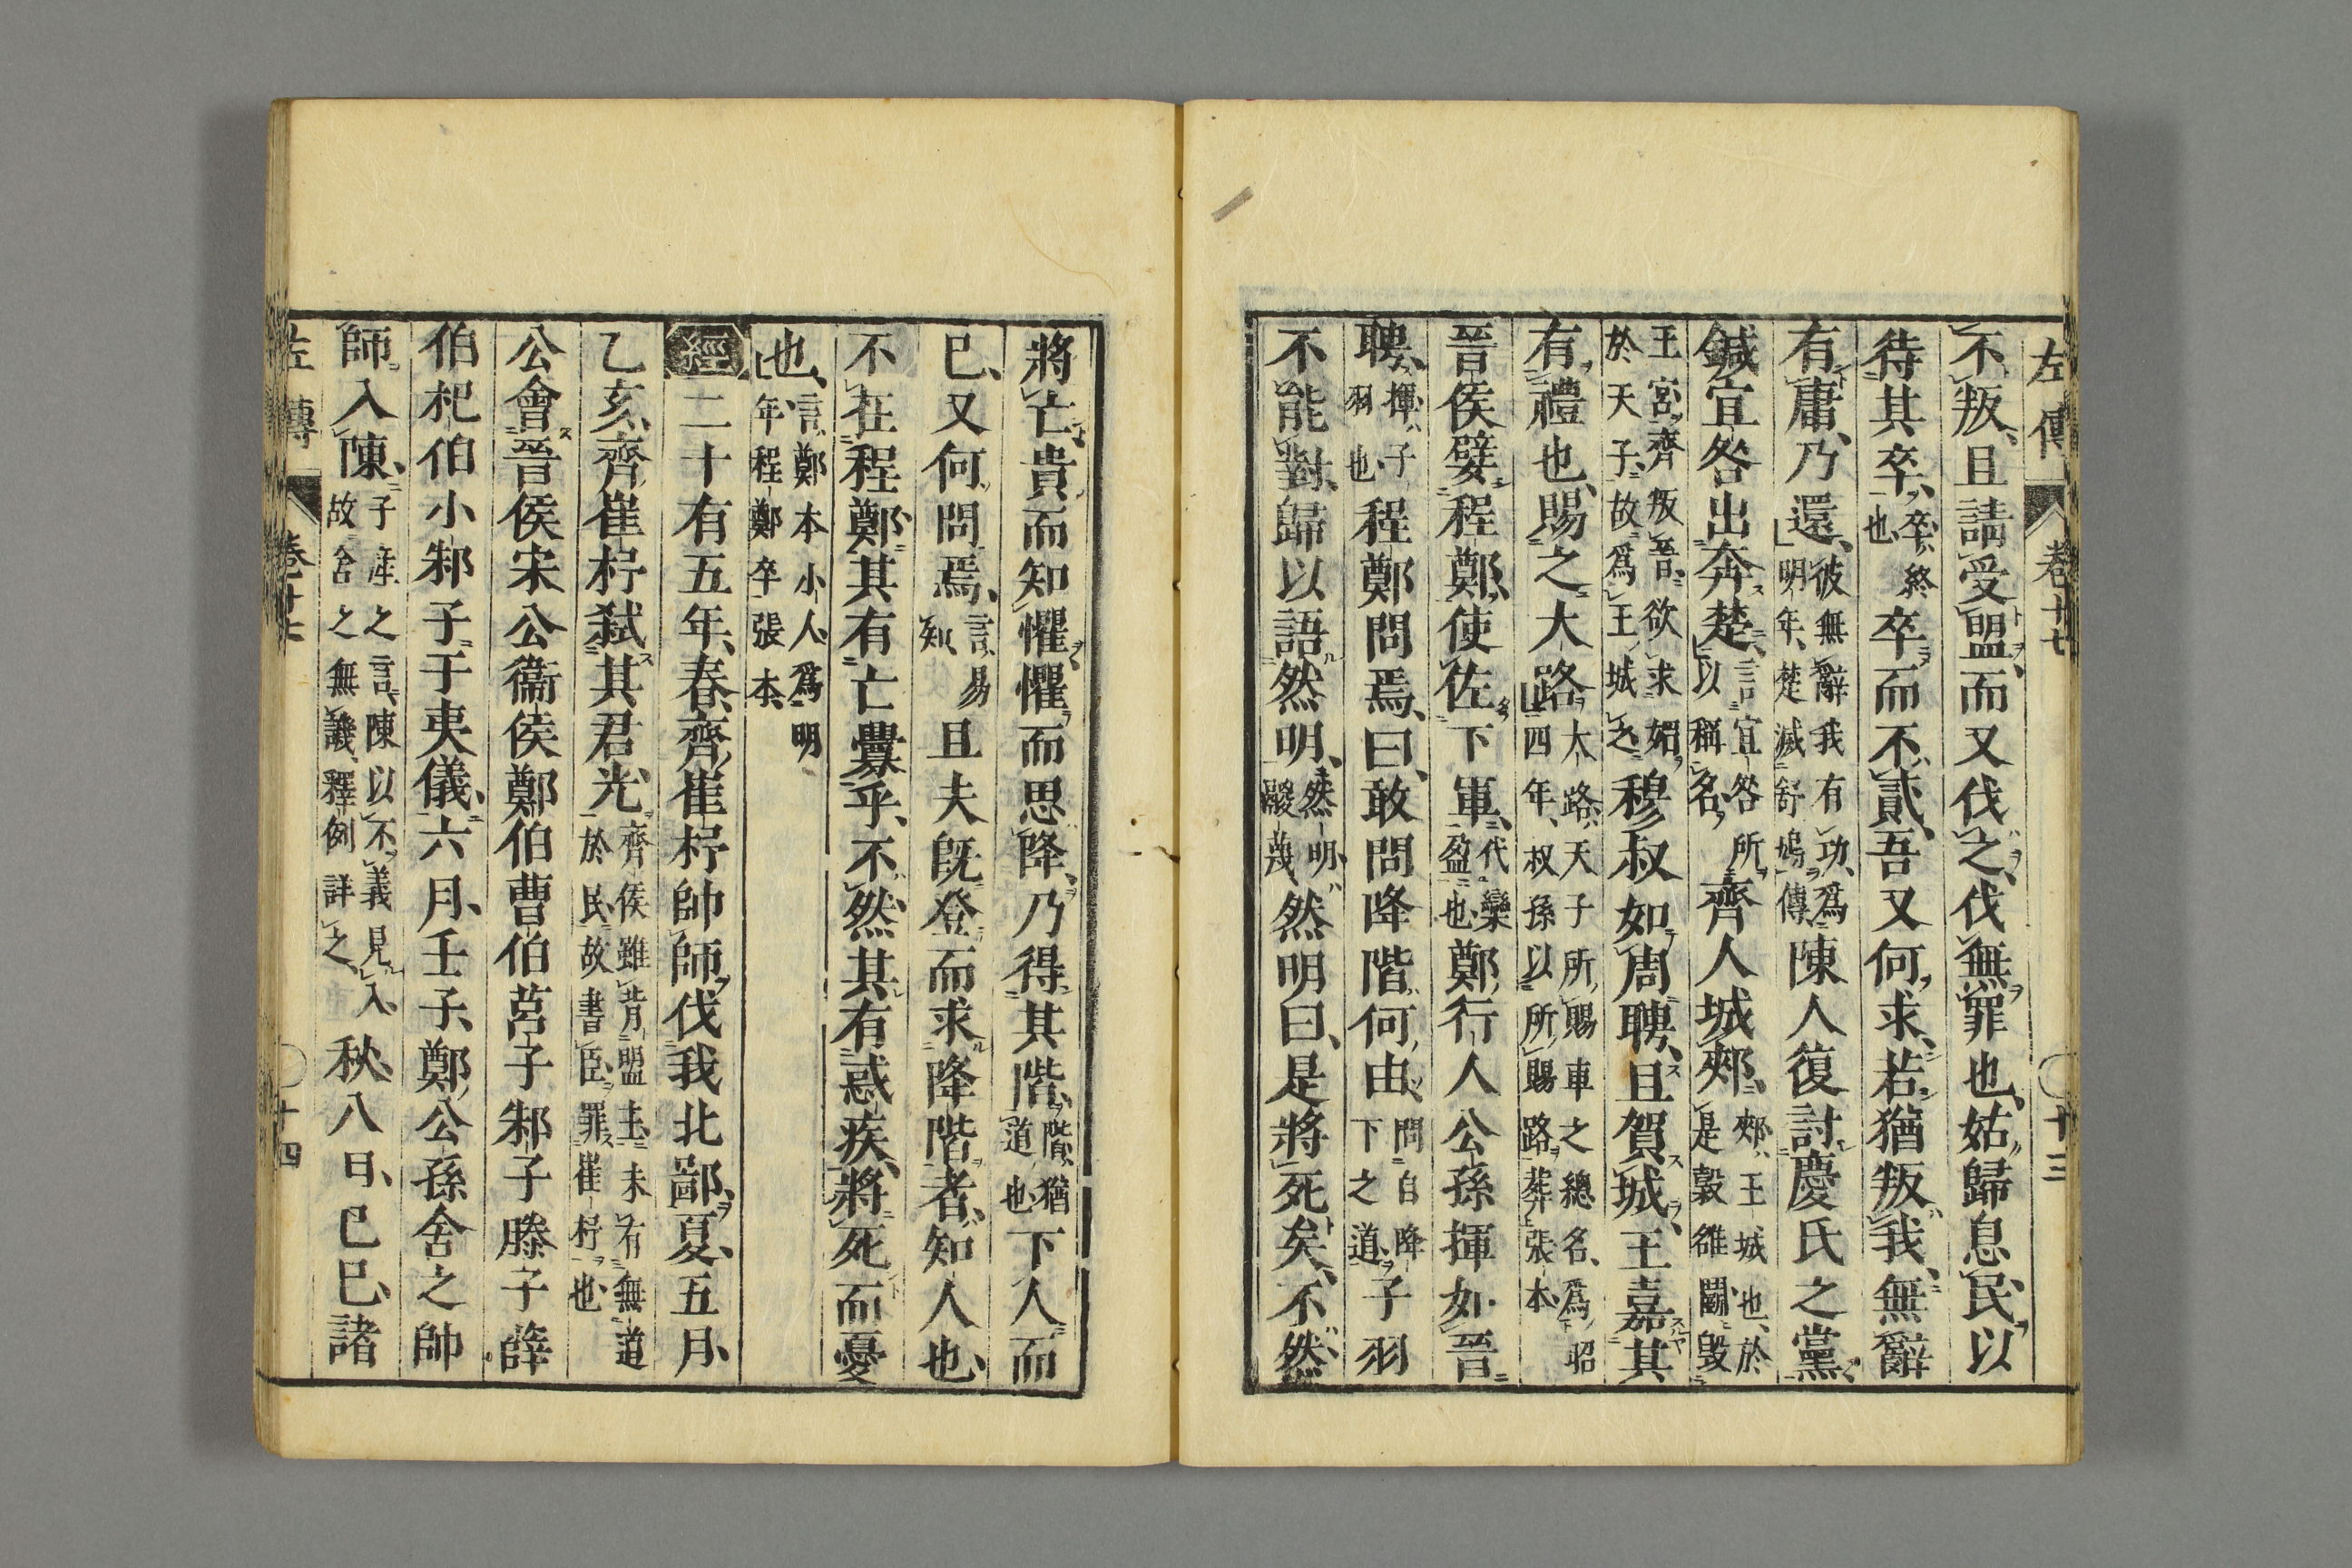 左傳 卷十七 〇十三
不叛、且請受盟、而又伐之、伐無罪也、姑歸息民、以
待其卒、卒、終也、卒而不貳、吾又何求、若猶叛我、無辭
有庸、乃還、彼無辭我有功、爲明年、楚滅舒鳩傳、陳人復討慶氏之黨、
鍼宜咎出奔楚、言宜咎所以稱名、齊人城郟、郟、王城也、於是穀雒鬭、毀
王宮、齊叛晉、欲求媚於天子、故爲王城之、穆叔如周聘、且賀城、王嘉其
有禮也、賜之大路、大路、天子所賜車之總名、爲昭四年、叔孫以所賜路葬張本、
晉侯嬖程鄭、使佐下軍、代欒盈也、鄭行人公孫揮如晉
聘、揮、子羽也、程鄭問焉、曰、敢問降階何由、問自降下之道、子羽
不能對、歸以語然明、然明、鬷蔑、然明曰、是將死矣、不然
將亡、貴而知懼、懼而思降、乃得其階、階、猶道也、下人而
已、又何問焉、言、易知、且夫既登而求降階者、知人也、
不在程鄭、其有亡釁乎、不然、其有惑疾、將死而憂
也、言鄭本小人、爲明年程鄭卒張本、
經 二十有五年、春、齊崔杼帥師、伐我北鄙、夏、五月、
乙亥、齊崔杼弑其君光、齊侯雖背盟主、未有無道於民、故書臣、罪崔杼也、
公會晉侯宋公衞侯鄭伯曹伯莒子邾子滕子薛
伯杞伯小邾子于夷儀、六月、壬子、鄭公孫舍之帥
師入陳、子產之言、陳以不義見入、故舍之無譏、釋例詳之、秋、八月、己巳、諸
左傳 卷十七 〇十四